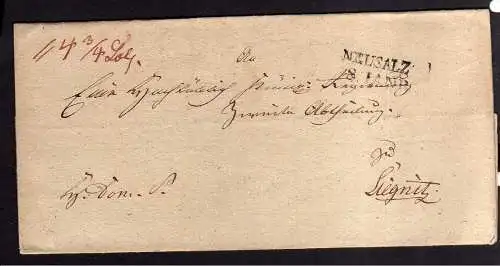 4 3/4 Lot
An
NEUSALZ
8 JAN
Eine Hochlöbliche Königl. Regierung
Zweite Abtheilung
zu
Liegnitz.